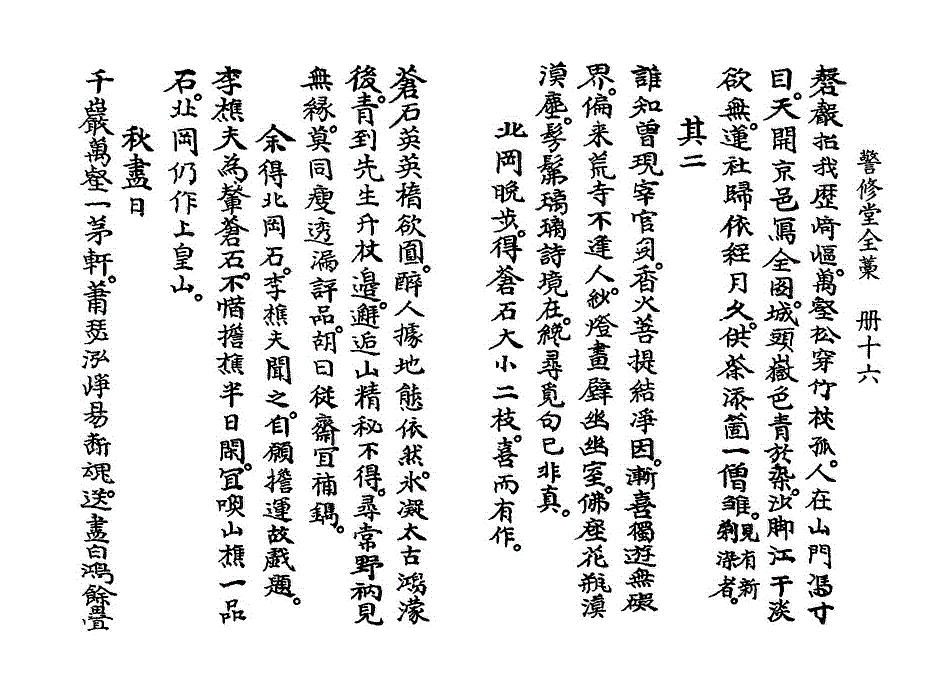 警修堂全藁　册十六
磬巖招我歷崎嶇。萬壑松穿竹杖孤。人在山門馮寸
目。天開京邑寫全圖。城頭嶽色青於染。沙脚江干淡
欲無。蓮社歸依經月久。供茶添箇一僧雛。見有新剃染者。
其二
誰知曾現宰官身。香火菩提結淨因。漸喜獨遊無礙
界。偏來荒寺不逢人。紗燈畫壁幽幽室。佛座花瓶漠
漠塵。髣髴璃璃詩境在。纔尋覓句已非真。
北岡晚步。得蒼石大小二枝。喜而有作。
蒼石英英橢欲圓。醉人據地態依然。氷凝太古鴻濛
後。青到先生升杖邉。邂逅山精秘不得。尋常野衲見
無緣。莫同瘦透漏評品。胡曰從齋宜補鐫。
余得北岡石。李樵夫聞之。自願擔運故戲題。
李樵夫為輦蒼石。不惜擔樵半日閑。宜喚山樵一品
石。北岡仍作上皇山。
秋盡日
千巖萬壑一茅軒。蕭瑟泓崢易斷魂。送盡白鴻餘疊